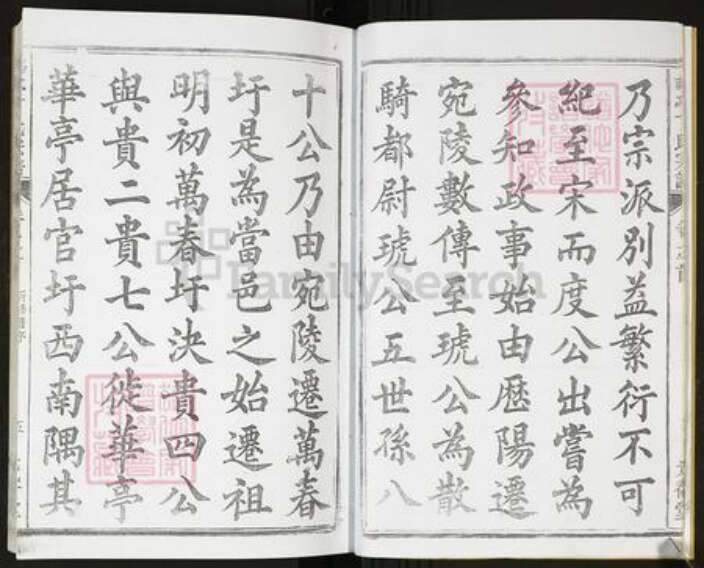 乃宗派別益繁衍不可
紀至宋而度公出嘗為
參知政事始由歷陽遷
宛陵數傳至琥公為散
騎都尉琥公五世孫八
十公乃由宛陵遷萬春
圩是為當邑之始遷祖
明初萬春圩決貴四公
與貴二貴七公徙華亭
華亭居官圩西南隅其
FamilySearch